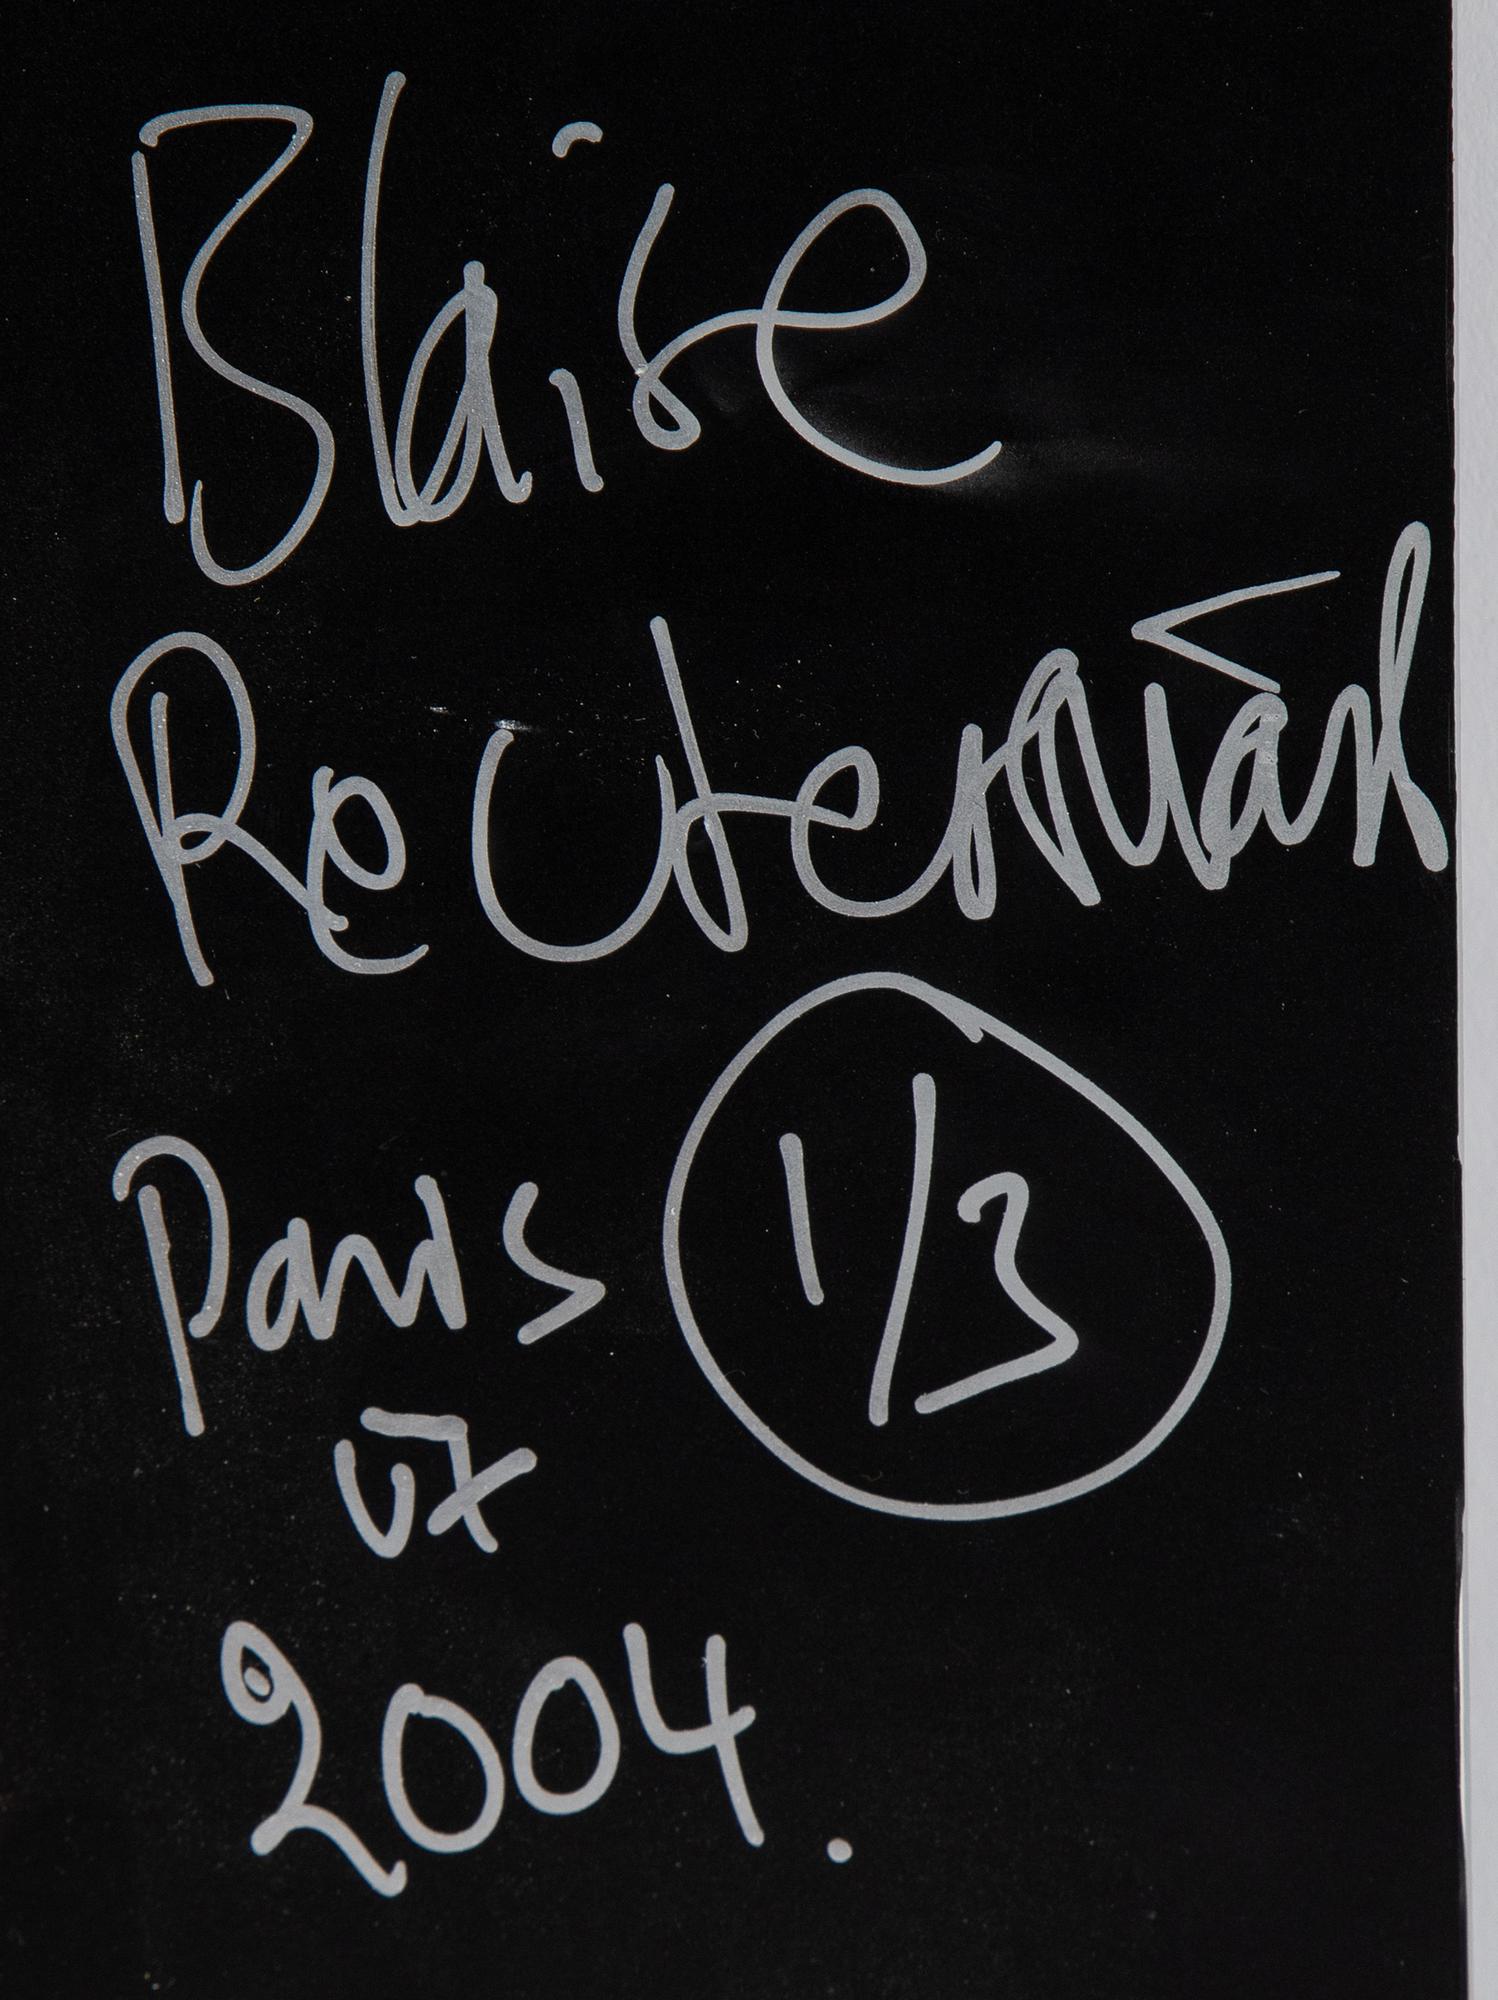 Blaise
Reutersward
Paris 1/3
07
2004.